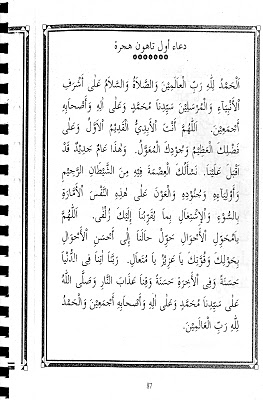 دعاء اول تاهون هجرة
اَلْحَمْدُ لِلّٰهِ رَبِّ الْعَالَمِيْنَ وَالصَّلَاةُ وَالسَّلَامُ عَلَى أَشْرَفِ
الْأَنْبِيَآءِ وَالْمُرْسَلِيْنَ سَيِّدِنَا مُحَمَّدٍ وَعَلَى اٰلِهِ وَأَصْحَابِهِ
أَجْمَعِيْنَ. اَللّٰهُمَّ أَنْتَ الْأَبَدِيُّ الْقَدِيْمُ الْأَوَّلُ وَعَلَى
فَضْلِكَ الْعَظِيْمِ وَجُوْدِكَ الْمُعَوَّلُ. وَهٰذَا عَامٌ جَدِيْدٌ قَدْ
اَقْبَلَ عَلَيْنَا. نَسْأَلُكَ الْعِصْمَةَ فِيْهِ مِنَ الشَّيْطَانِ الرَّجِيْمِ
وَأَوْلِيَاءِهِ وَجُنُوْدِهِ وَالْعَوْنَ عَلَى هٰذِهِ النَّفْسِ الْأَمَّارَةِ
بِالسُّوْءِ وَالْاِشْتِغَالِ بِمَا يُقَرِّبُنَا إِلَيْكَ زُلْفَى. اَللّٰهُمَّ
يَامُحَوِّلَ الْأَحْوَالِ حَوِّلْ حَالَنَا إِلَى أَحْسَنِ الْأَحْوَالِ
بِحَوْلِكَ وَقُوَّتِكَ يَا عَزِيْزُ يَا مُتَعَالِ. رَبَّنَا اٰتِنَا فِى الدُّنْيَا
حَسَنَةً وَفِى الْاٰخِرَةِ حَسَنَةً وَقِنَا عَذَابَ النَّارِ وَصَلَّى اللّٰهُ
عَلَى سَيِّدِنَا مُحَمَّدٍ وَعَلَى اٰلِهِ وَأَصْحَابِهِ أَجْمَعِيْنَ وَالْحَمْدُ
لِلّٰهِ رَبِّ الْعَالَمِيْنَ.